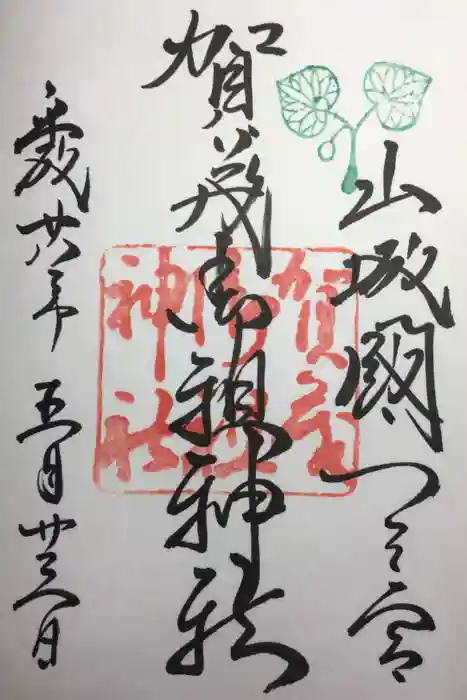 山城國一之宮
賀茂御祖神社
平成廿八年五月廿日
賀茂
御祖
神社